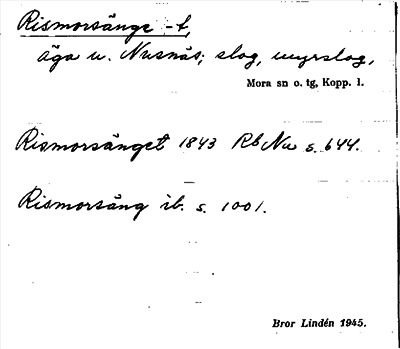 Rismorsänge -t,
äga u. Nusnäs; slog, myrslog,
Mora sn o. tg, Kopp. l.
Rismorsänget 1843 Rb Nu s. 644.
Rismorsäng ib. s. 1001.
Bror Lindén 1945.